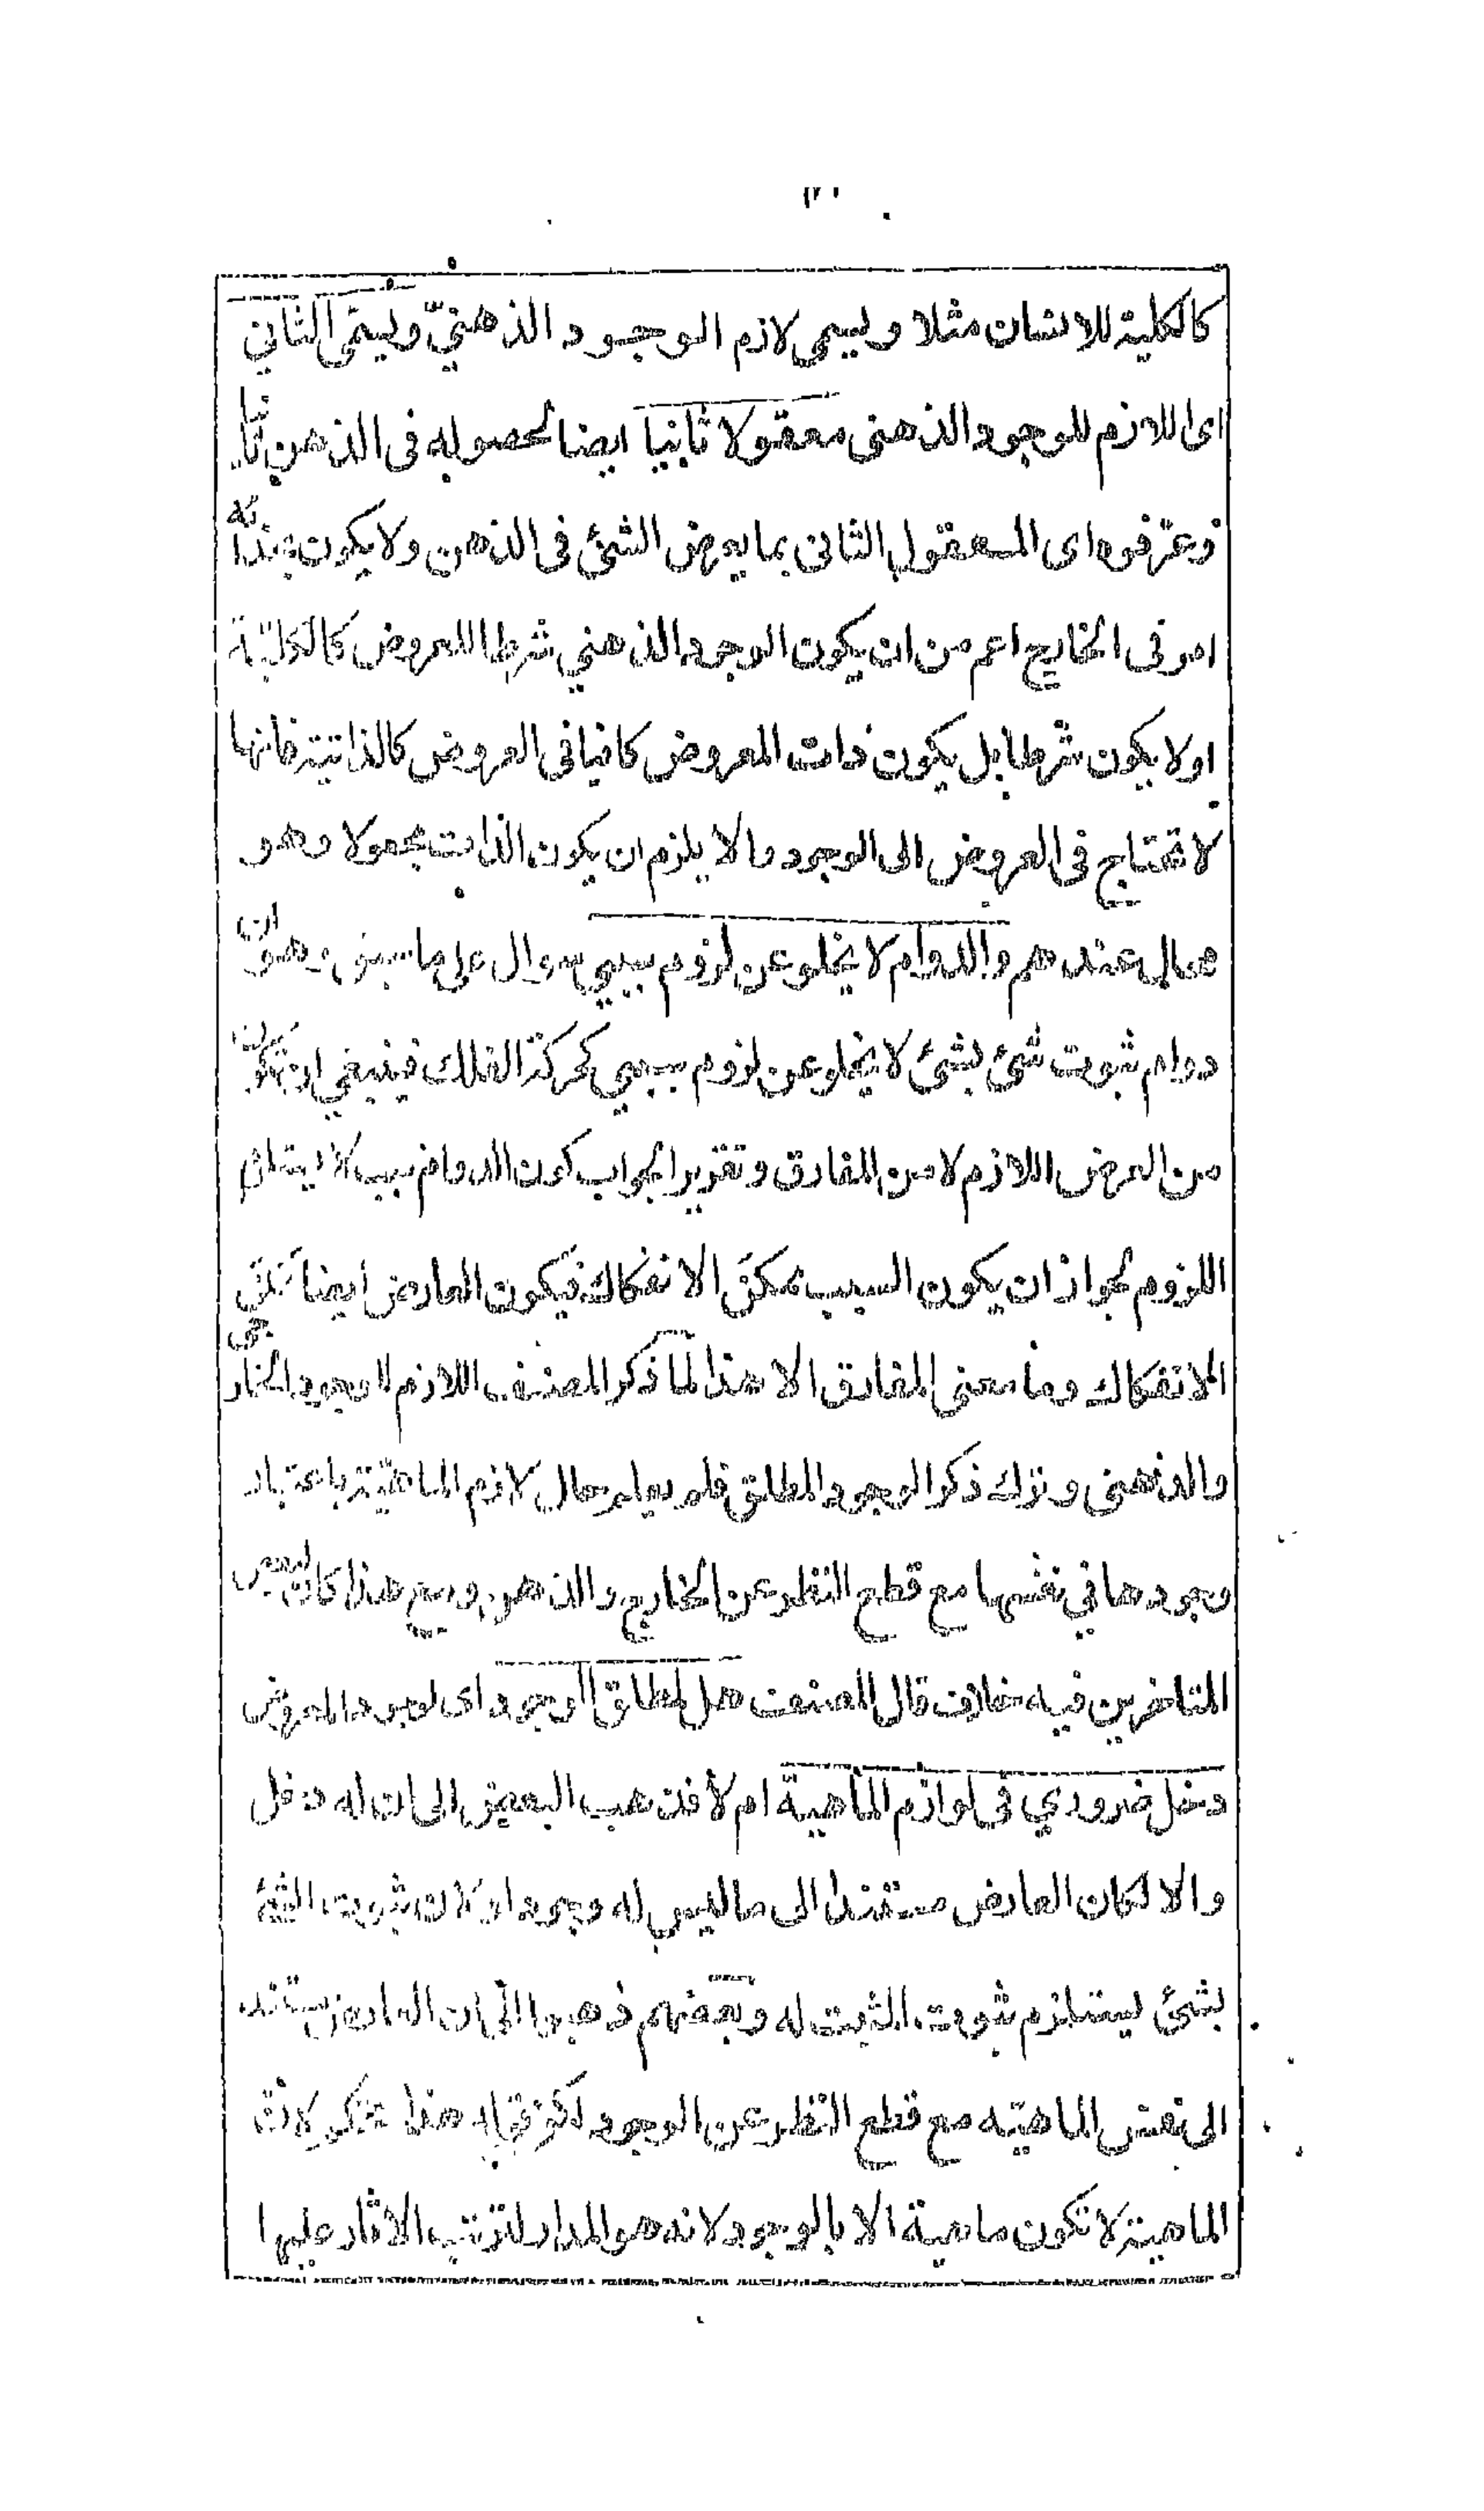 كالكلية للانسان مثلا ويسمى لازم الوجود الذهنيّ ويسمّى الثاني
اى اللازم للوجود الذهنى معقولا ثانيا ايضا لحصوله فى الذهن ثانيا
وعرّفوه اى المعقول الثانى بما يعرض الشئ فى الذهن ولا يكون بحذائه
امر فى الخارج اعم من ان يكون الوجود الذهني شرطا للعروض كالكليّة
اولا يكون شرطا بل يكون ذات المعروض كافيا فى العروض كالذاتية فانها
لا تحتاج فى العروض الى الوجود والا يلزم ان يكون الذاتى مجعولا وهو
محال عندهم والدوام لا يخلو عن لزوم سببي سوال على ما سبق وهو ان
دوام ثبوت شئ بشئ لا يخلو عن لزوم سببي كحركة الفلك فينبغي ان تكون
من العرض اللازم لا من المفارق وتقرير الجواب كون الدوام بسبب لا يستلزم
اللزوم لجواز ان يكون السبب ممكن الانفكاك فيكون العارض ايضا ممكن
الانفكاك وما معنى المفارق الا هذا لما ذكر المصنف اللازم الوجود الخارجى
والذهنى وترك ذكر الوجود المطلق فلم يعلم حال لازم الماهيّة باعتبار
وجودها في نفسها مع قطع النظر عن الخارج والذهن ومع هذا كان لبعض
المتاخرين فيه خلاف قال المصنف هل لمطلق الوجود اى لوجود المعروض
دخل ضروري فى لوازم الماهية ام لا فذهب البعض الى ان له دخل
والا لكان العارض مستندا الى ما ليس له وجود او لان ثبوت الشئ
بشئ يستلزم ثبوت المثبت له وبعضهم ذهبوا الى ان العارض مستند
الى نفس الماهيّه مع قطع النظر عن الوجود هذا لان
الماهية لا تكون ماهية الا بالوجود لانه هو المدار لترتب الاثار عليها